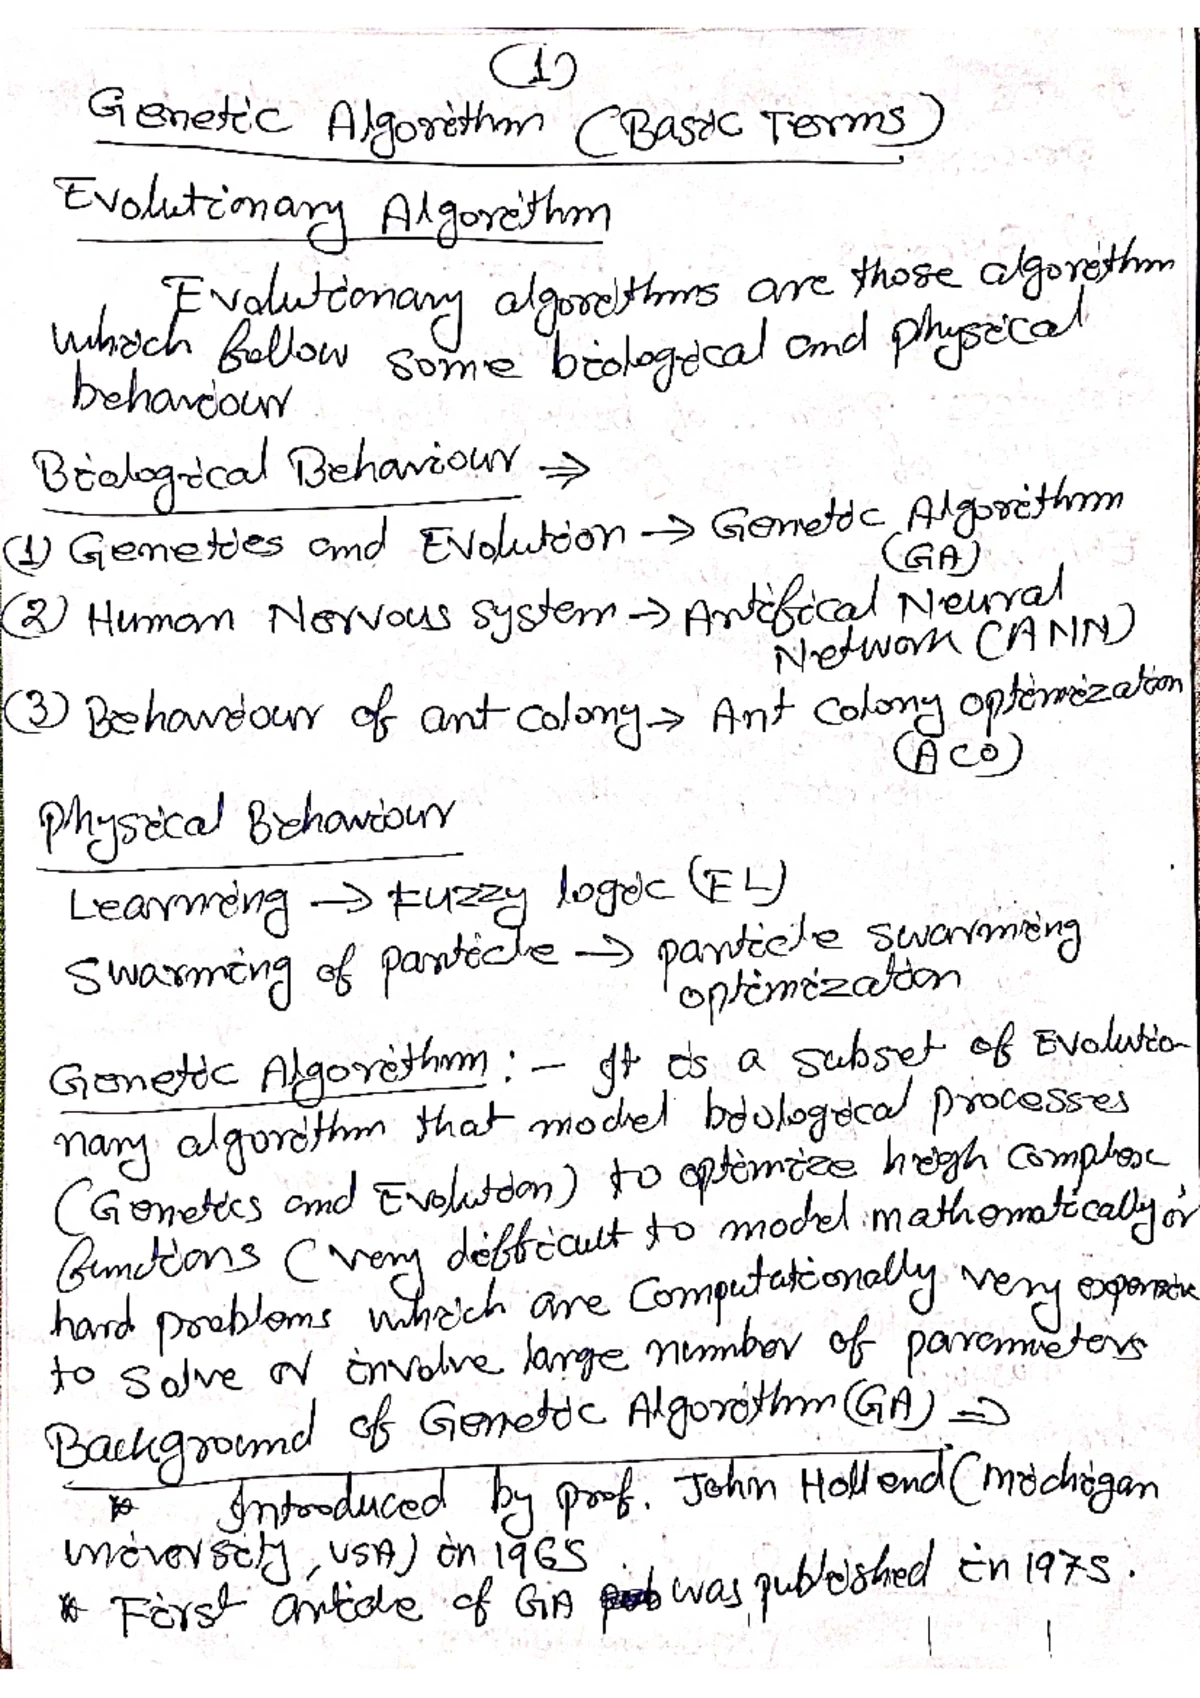 (1)
Genetic Algorithm (Basic Terms)
Evolutionary Algorithm
Evolutionary algorithms are those algorithm
which follow some biological and physical
behaviour
Biological Behaviour ⇒
(1) Genetics and Evolution → Genetic Algorithm
(GA)
(2) Human Nervous system → Artifical Neural
Network (ANN)
(3) Behaviour of ant colony → Ant colony optimization
(ACO)
Physical Behaviour
Learning → Fuzzy logic (FL)
Swarming of particle → particle swarming
optimization
Genetic Algorithm : - It is a subset of Evolutio-
nary algorithm that model biological processes
(Genetics and Evolution) to optimize high complex
functions (very difficult to model mathematically or
hard problems which are Computationally very expensive
to solve or involve large number of parameters
Background of Genetic Algorithm (GA) ⇒
* Introduced by prof. John Hollend (Michigan
university, USA) in 1965
* First article of GA was published in 1975.